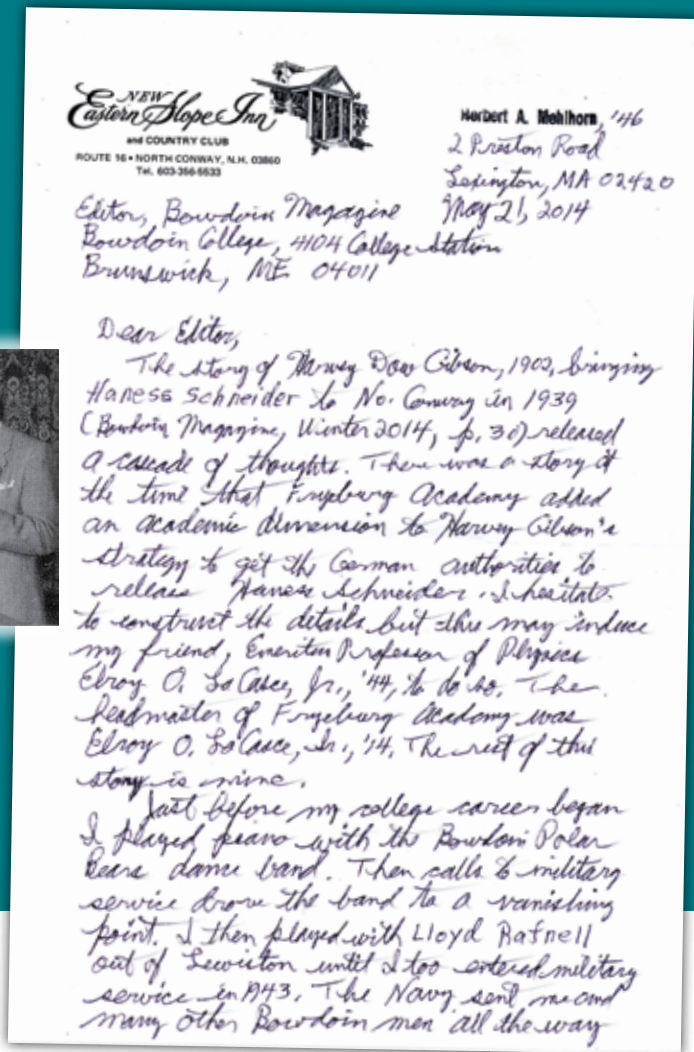 NEW
Eastern Slope Inn
and COUNTRY CLUB
ROUTE 16 • NORTH CONWAY, N.H. 03860
Tel. 603-356-5533
Herbert A. Mehlhorn, '46
2 Preston Road
Lexington, MA 02420
May 21, 2014
Editor, Bowdoin Magazine
Bowdoin College, 4104 College Station
Brunswick, ME 04011
Dear Editor,
The story of Harvey Dow Gibson, 1902, bringing
Haness Schneider to No. Conway in 1939
(Bowdoin Magazine, Winter 2014, p. 30) released
a cascade of thoughts. There was a story at
the time that Fryeburg Academy added
an academic dimension to Harvey Gibson's
strategy to get the German authorities to
release Haness Schneider. I hesitate
to construct the details but this may induce
my friend, Emeritus Professor of Physics
Elroy O. LaCasce, Jr., '44, to do so. The
headmaster of Fryeburg Academy was
Elroy O. LaCasce, Sr., '14. The rest of this
story is mine.
Just before my college career began
I played piano with the Bowdoin Polar
Bears dance band. Then calls to military
service drove the band to a vanishing
point. I then played with Lloyd Rafnell
out of Lewiston until I too entered military
service in 1943. The Navy sent me and
many other Bowdoin men all the way